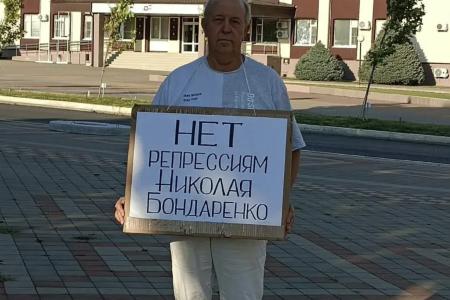 НЕТ
РЕПРЕССИЯМ
НИКОЛАЯ
БОНДАРЕНКО